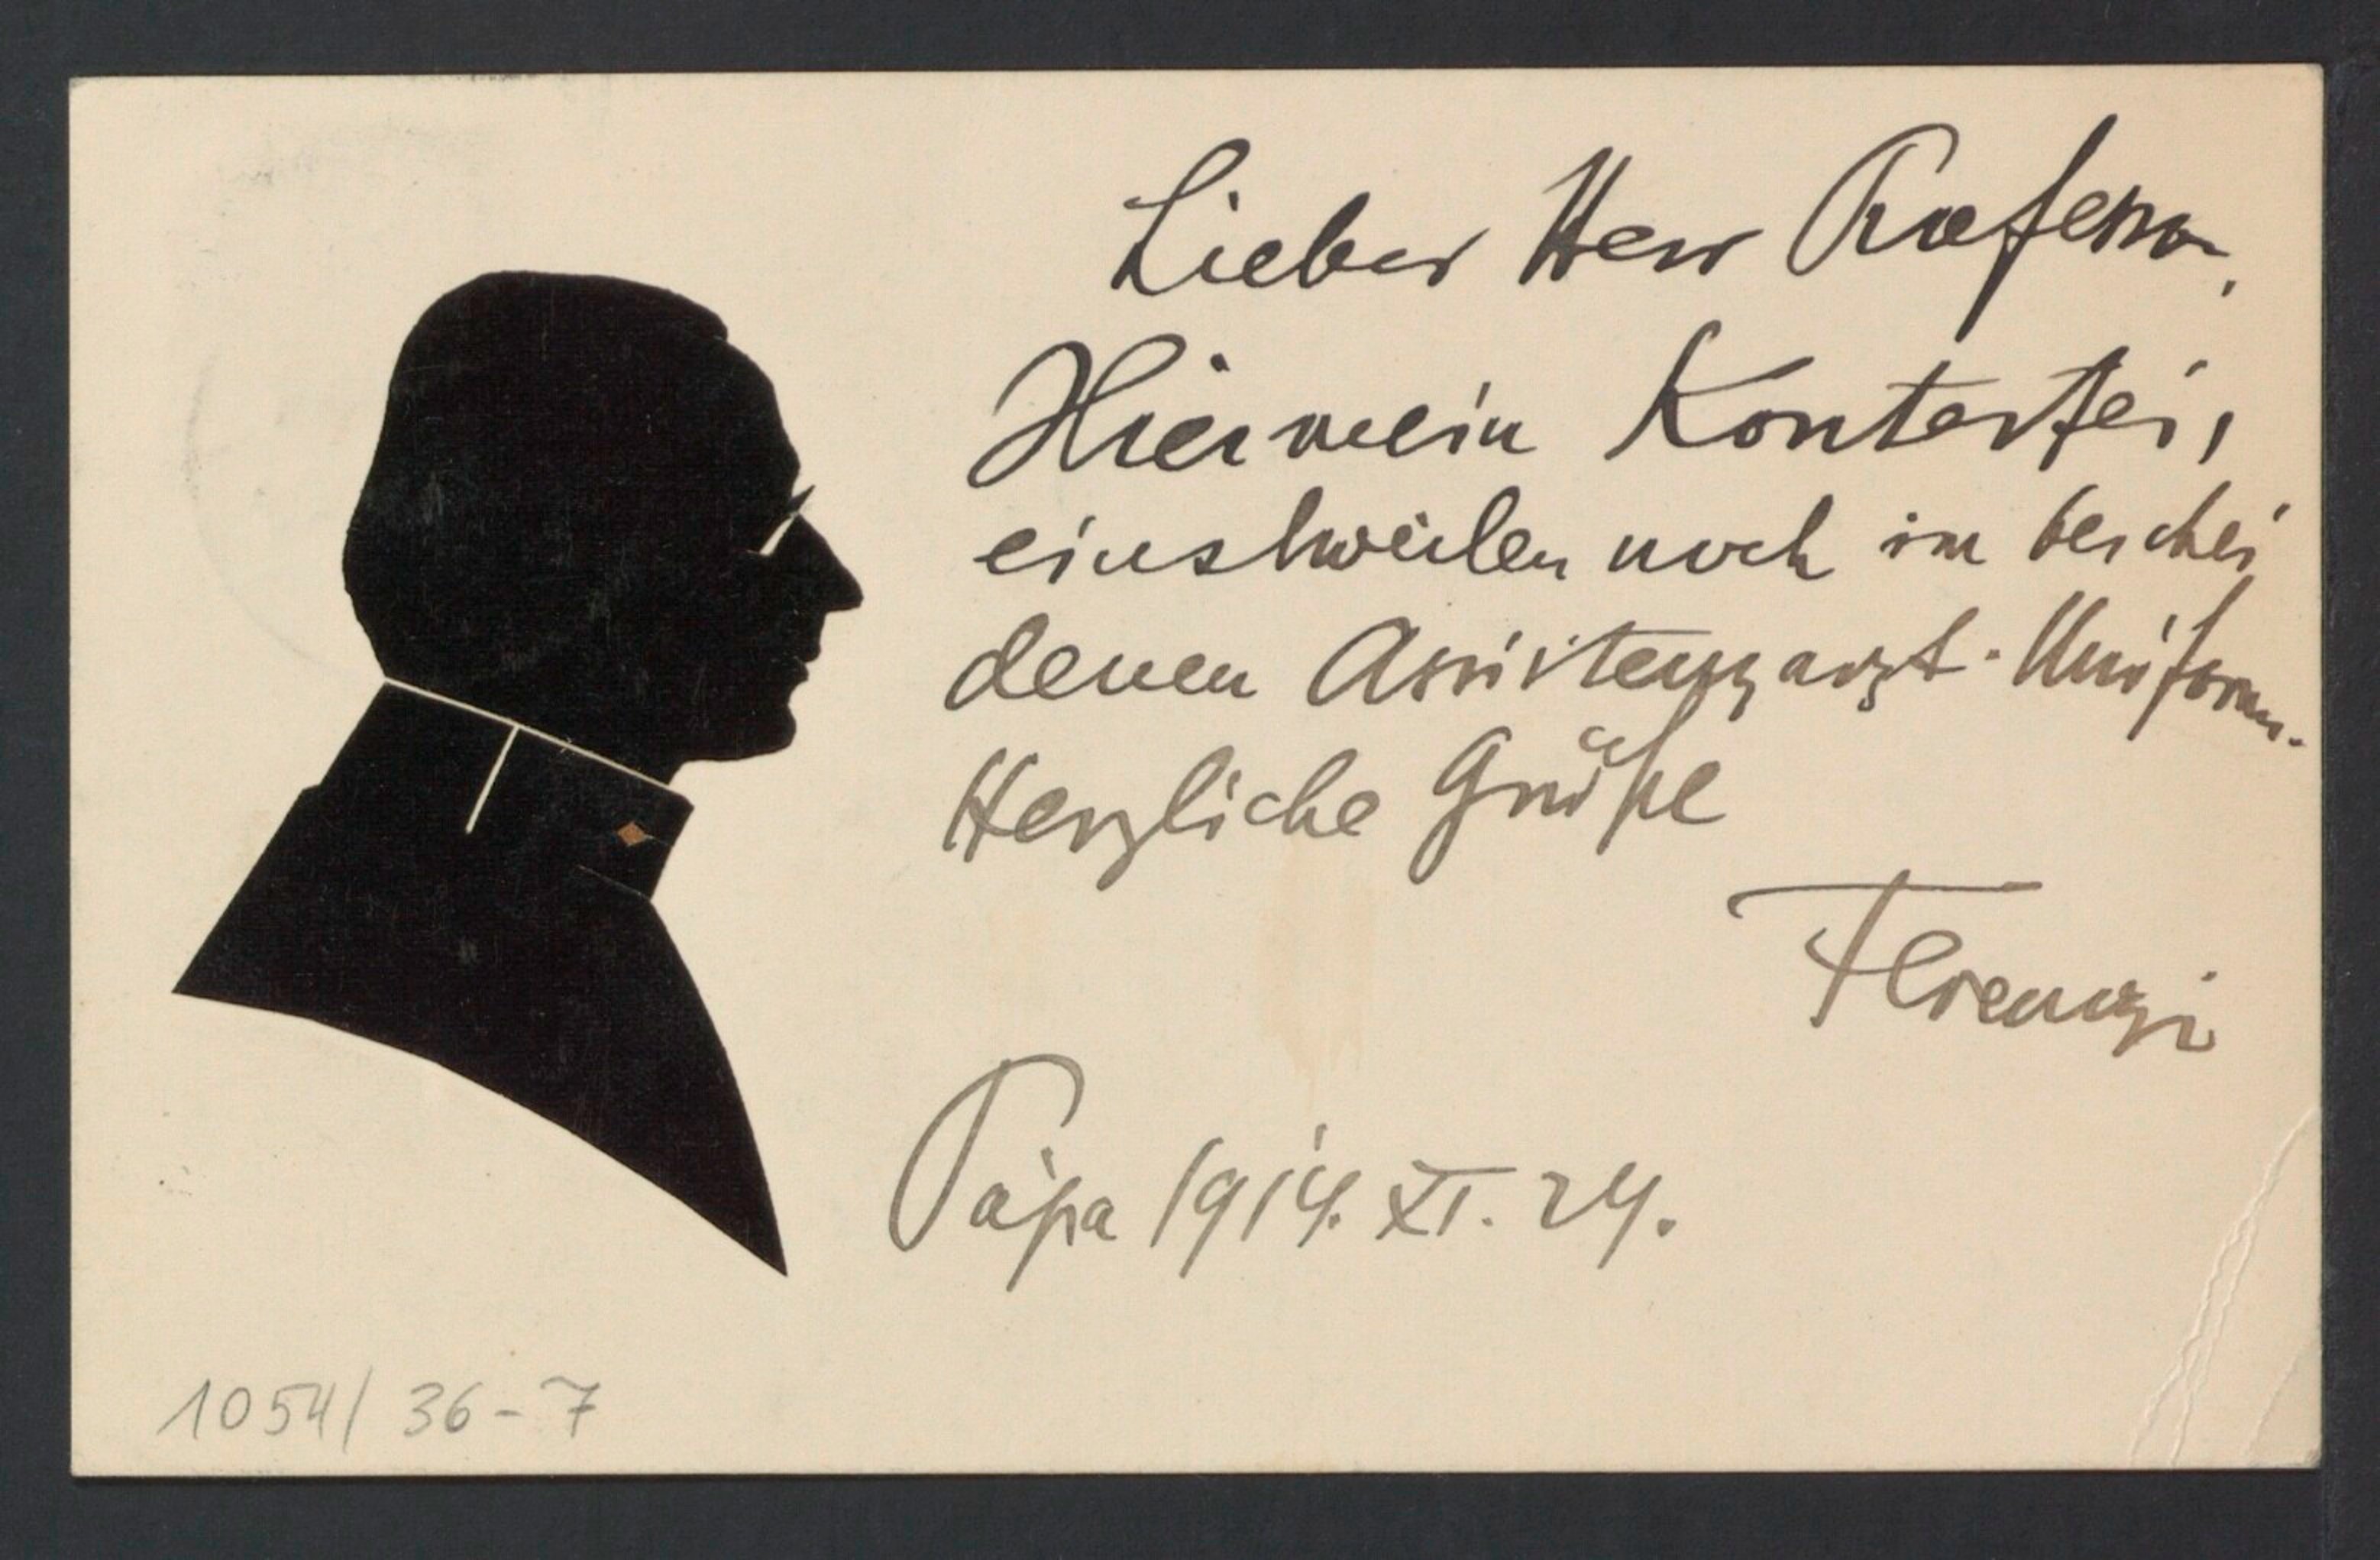 Lieber Herr Professor,
Hier mein Konterfei,
einstweilen noch in beschei
denen Assistenzarzt-Uniform.
Herzliche Grüße
Ferenczi
Pápa 1914. XI. 24.
1054/ 36-7